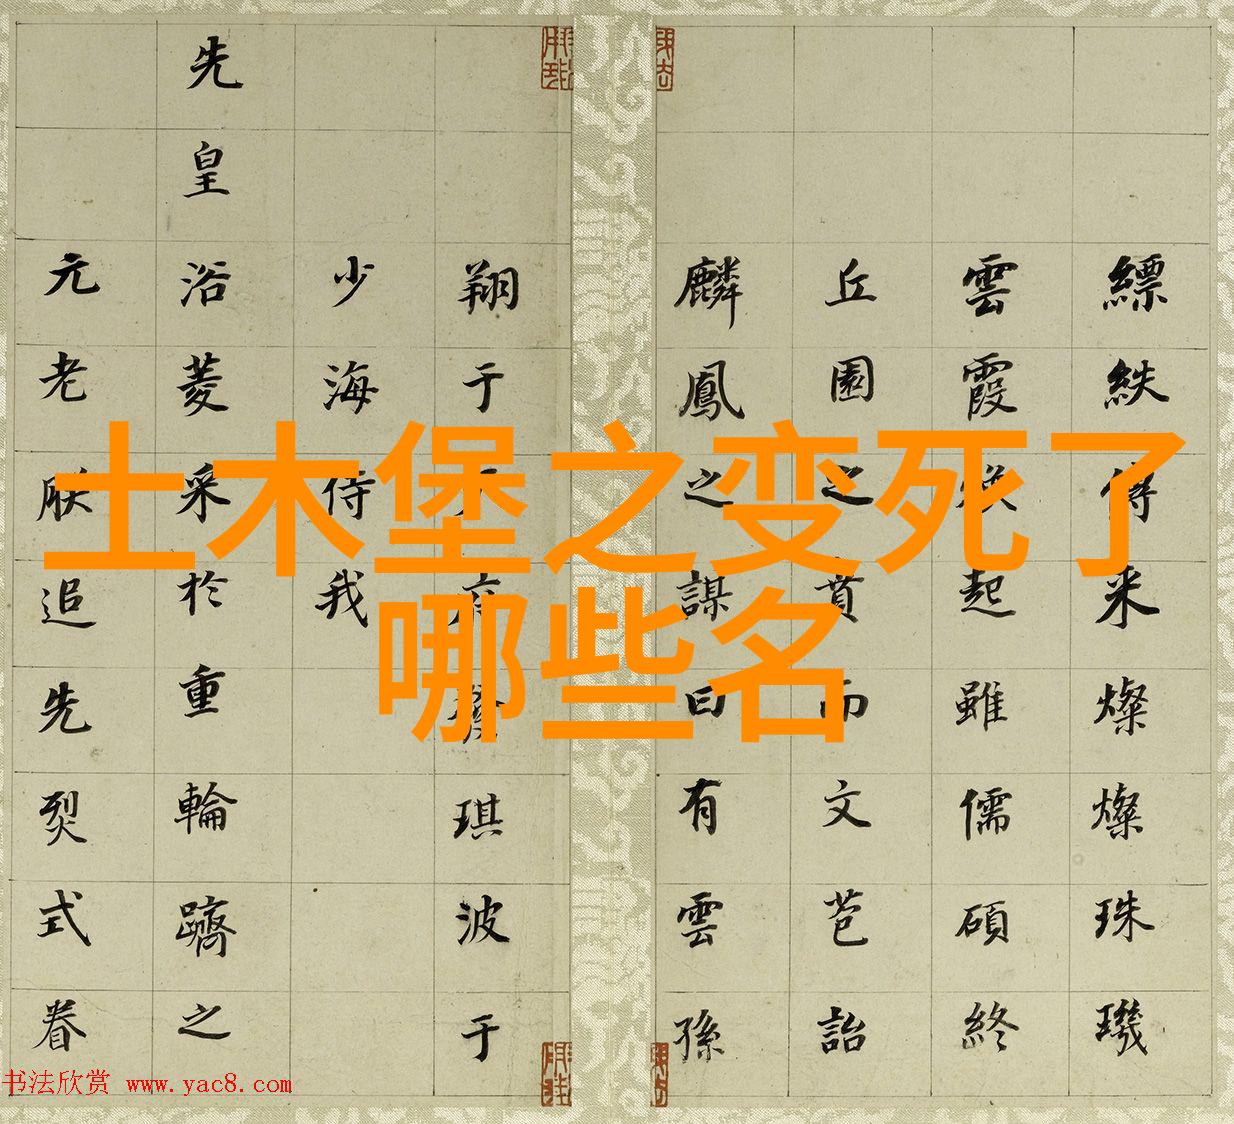 土木堡之变死了
哪些名
縹紩采燦燦珠璣
雲霞煥起雖儒碩終
丘園之賁而文苞詒
麟鳳之謀曰有雲孫
翔于琪波于
少海侍我
先皇浴菱采於重輪躋之
元老朕追先烈式眷
书法欣赏 www.yac8.com